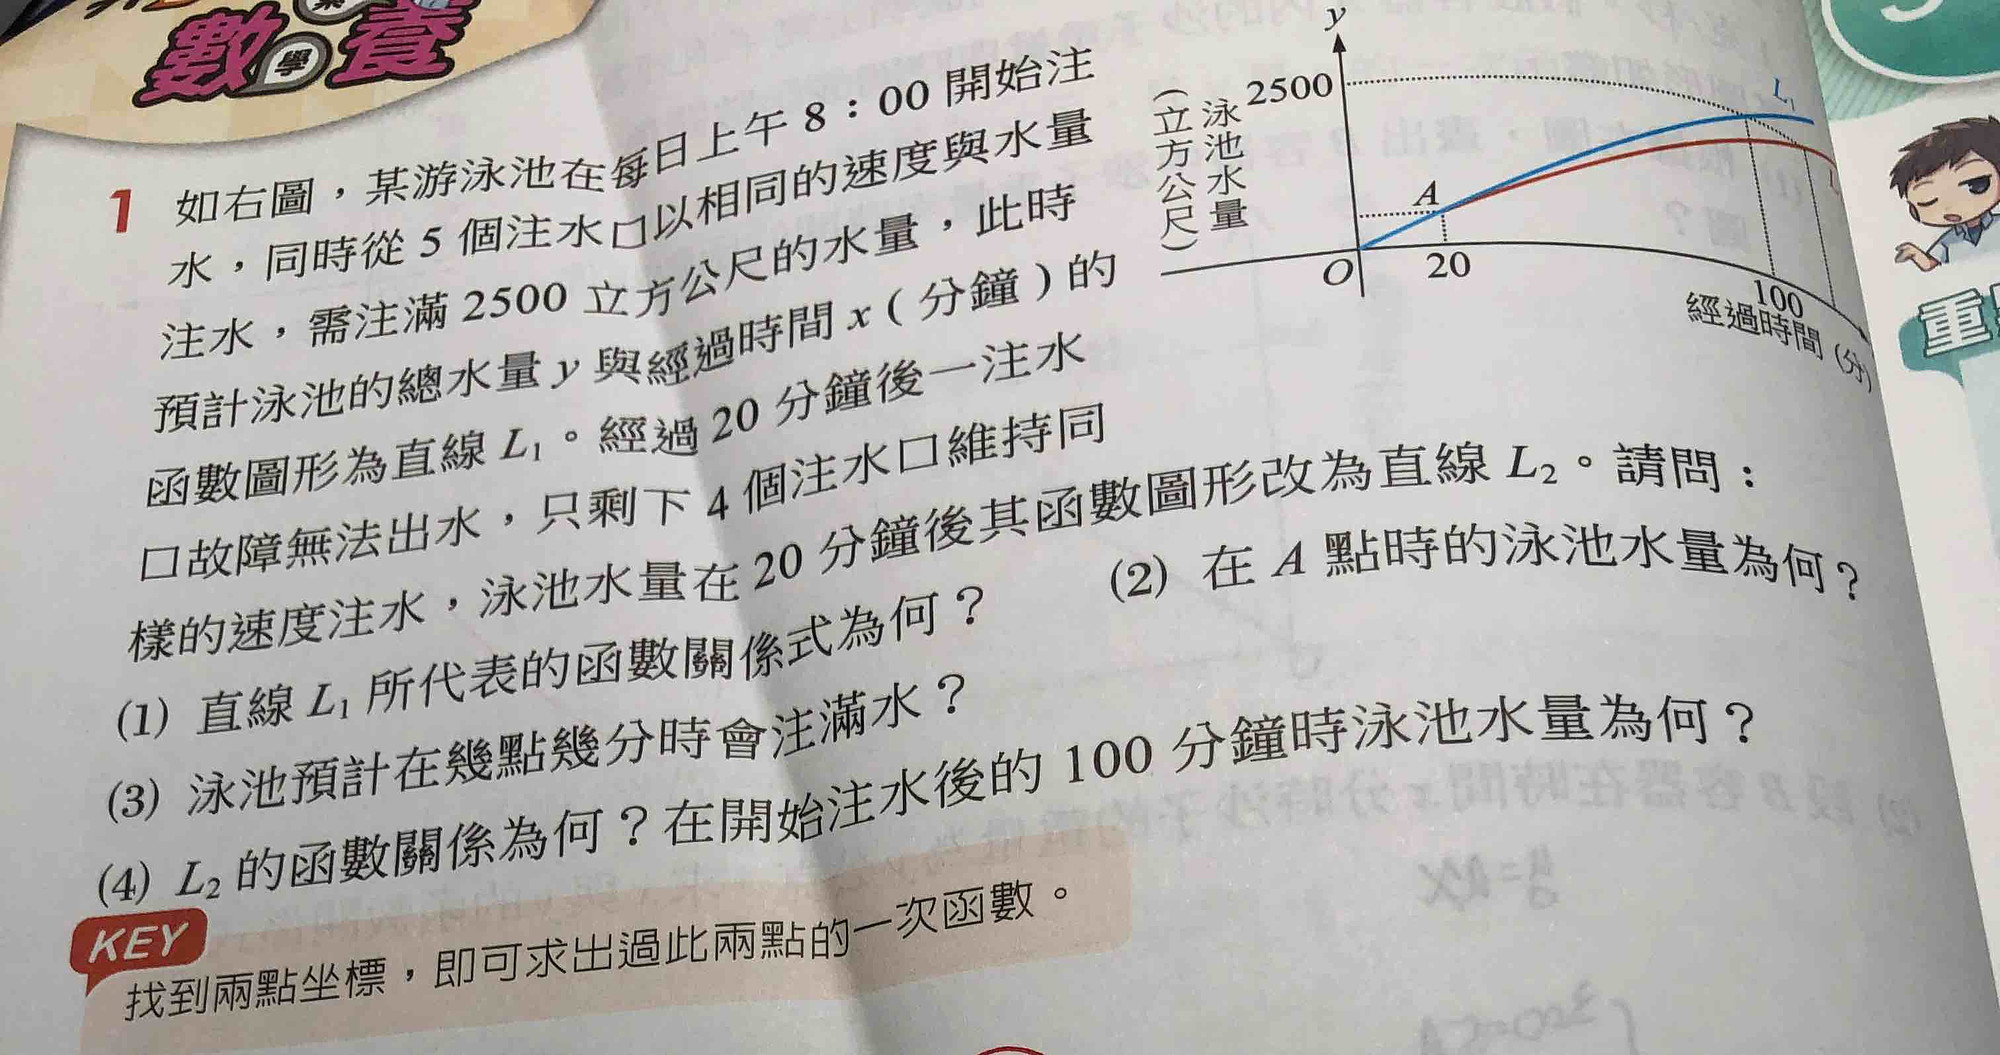 數學素養
1 如右圖，某游泳池在每日上午 8：00 開始注
水，同時從 5 個注水口以相同的速度與水量
注水，需注滿 2500 立方公尺的水量，此時
預計泳池的總水量 y 與經過時間 x（分鐘）的
函數圖形為直線 L₁。經過 20 分鐘後一注水
口故障無法出水，只剩下 4 個注水口維持同
樣的速度注水，泳池水量在 20 分鐘後其函數圖形改為直線 L₂。請問：
(1) 直線 L₁ 所代表的函數關係式為何？ (2) 在 A 點時的泳池水量為何？
(3) 泳池預計在幾點幾分時會注滿水？
(4) L₂ 的函數關係為何？在開始注水後的 100 分鐘時泳池水量為何？
KEY
找到兩點坐標，即可求出過此兩點的一次函數。
y
2500
泳池水量
（立方公尺）
L₁
L
A
O
20
100
經過時間（分）
重